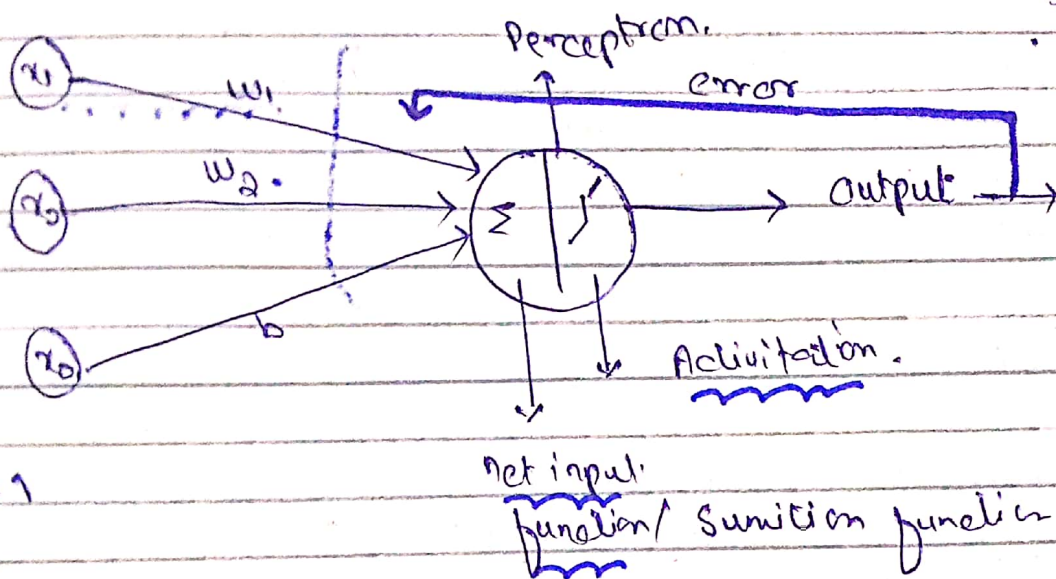 Perceptron.
error
x1
w1.
w2.
x2
Σ
Output
b
x0
Activitation.
1
net input.
function/ Sumition function